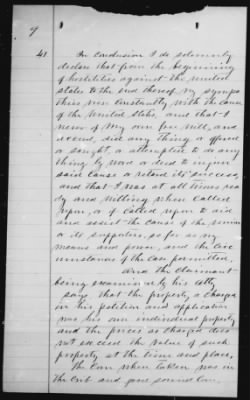 9
41. In conclusion I do solemnly
declare that from the beginning
of hostilities against the United
States to the end thereof my sympa
thies were constantly with the cause
of the United States, and that I
never of my own free will, and
accord, did any thing, or offered
or sought, or attempted to do any
thing by word or deed to injure
said cause or retard its success,
and that I was at all times rea
dy and willing, when called
upon, or if called upon to aid
and assist the cause of the Union
or its supporters, so far as my
means and power, and the cir
cumstances of the case permitted.
And the claimant
being examined by his atty
says that the property as charged
in his petition and application
was his own individual property
and the prices as charged does
not exceed the value of such
property at the time and place,
the corn when taken was in
the crib and good sound corn.